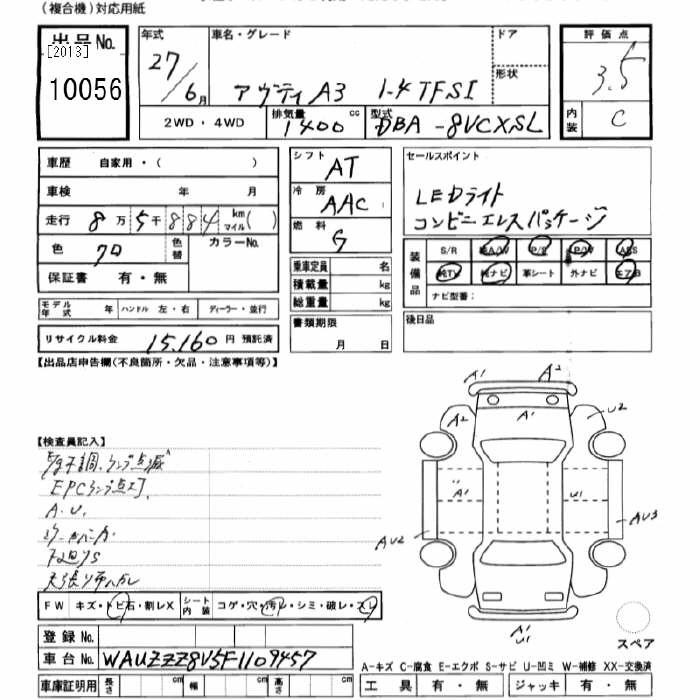 (複合機)対応用紙
出品No.
[2013]
10056
年式
27/6月
車名・グレード
アウディ A3 1-4 TFSI
ドア
形状
評価点
3.5
内装
C
2WD・4WD
排気量
1400 cc
型式
DBA-8VCXSL
車歴 自家用・( )
車検 年 月
走行 8万5千884 km マイル ( )
色 クロ
色替
カラーNo.
保証書 有・無
シフト
AT
冷房
AAC
燃料
G
セールスポイント
LEDライト
コンビニエレスパッケージ
装備品
S/R AW P/S P/W ABS
TV ナビ 革シート 外ナビ エアB
ナビ型番:
乗車定員 名
積載量 kg
総重量 kg
モデル年式 年
ハンドル 左・右
ディーラー・並行
リサイクル料金 15,160 円 預託済
書類期限
月 日
後日品
【出品店申告欄(不良箇所・欠品・注意事項等)】
【検査員記入】
E/g不調、ランプ点滅
EPCランプ点灯
A.U.
天張り
A1 A2
A2 A1 U2
A1 U1
AU2 AU3
A1
U1
スペア
FW キズ・トビ石・割レX
シート内装 コゲ・穴・汚レ・シミ・破レ・スレ
登録No.
車台No. WAUZZZ8V5F1109457
A-キズ C-腐食 E-エクボ S-サビ U-凹ミ W-補修 XX-交換済
車庫証明用 長さ cm 幅 cm 高さ cm
工具 有・無 ジャッキ 有・無